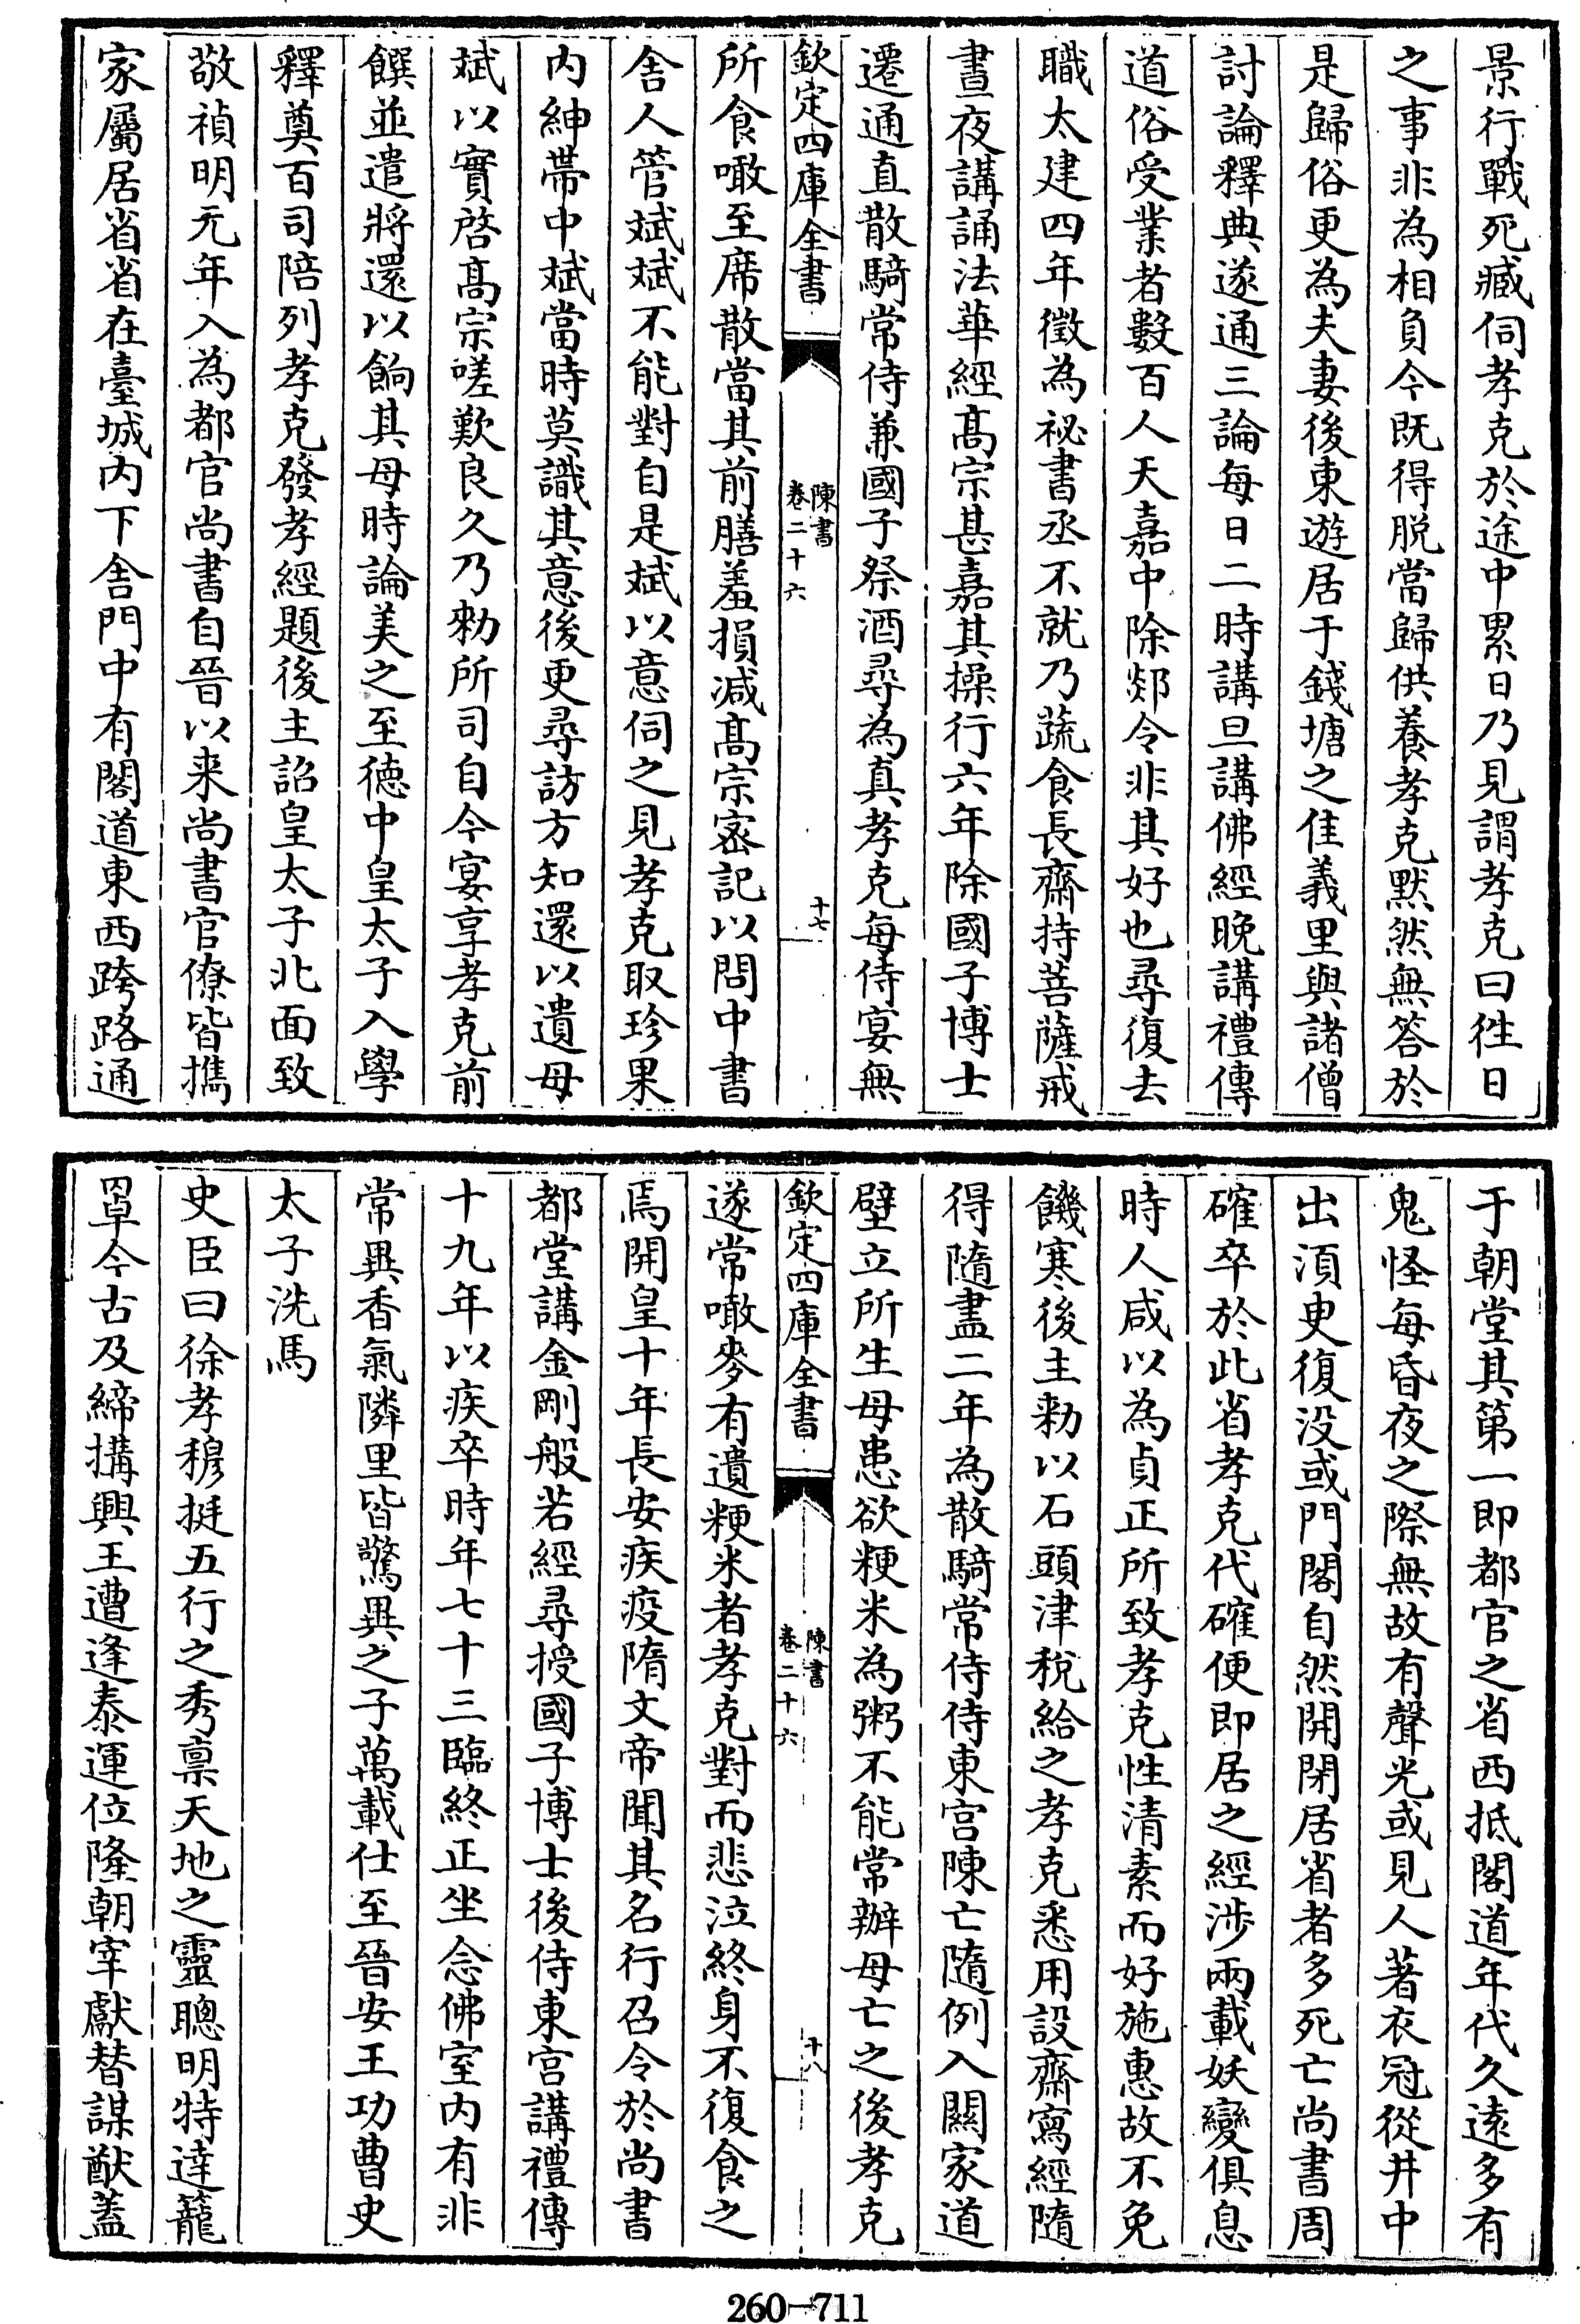 景行戰死臧伺孝克於途中累日乃見謂孝克曰徃日
之事非為相負今既得脱當歸供養孝克默然無答於
是歸俗更為夫妻後東遊居于錢塘之佳義里與諸僧
討論釋典遂通三論每日二時講旦講佛經晚講禮傳
道俗受業者數百人天嘉中除郯令非其好也尋復去
職太建四年徵為祕書丞不就乃蔬食長齋持菩薩戒
晝夜講誦法華經髙宗甚嘉其操行六年除國子博士
遷通直散騎常侍兼國子祭酒尋為真孝克每侍宴無
欽定四庫全書
陳書
卷二十六
十七
所食噉至席散當其前膳羞損减髙宗宻記以問中書
舎人管斌斌不能對自是斌以意伺之見孝克取珍果
内紳帶中斌當時莫識其意後更尋訪方知還以遺母
斌以實啓髙宗嗟歎良久乃勅所司自今宴享孝克前
饌並遣將還以餉其母時論美之至徳中皇太子入學
釋奠百司陪列孝克發孝經題後主詔皇太子北面致
敬禎明元年入為都官尚書自晉以来尚書官僚皆㩗
家屬居省省在臺城内下舎門中有閣道東西跨路通
于朝堂其第一即都官之省西抵閣道年代久逺多有
鬼怪每昏夜之際無故有聲光或見人著衣冠從井中
出湏臾復没或門閣自然開閉居省者多死亡尚書周
確卒於此省孝克代確便即居之經渉兩載妖變俱息
時人咸以為貞正所致孝克性清素而好施惠故不免
饑寒後主勅以石頭津稅給之孝克悉用設齋寫經隨
得隨盡二年為散騎常侍侍東宫陳亡隨例入關家道
壁立所生母患欲粳米為粥不能常辦母亡之後孝克
欽定四庫全書
陳書
卷二十六
十八
遂常噉麥有遺粳米者孝克對而悲泣終身不復食之
焉開皇十年長安疾疫隋文帝聞其名行召令於尚書
都堂講金剛般若經尋授國子博士後侍東宫講禮傳
十九年以疾卒時年七十三臨終正坐念佛室内有非
常異香氣隣里皆驚異之子萬載仕至晉安王功曹史
太子洗馬
史臣曰徐孝穆挺五行之秀禀天地之靈聰明特達籠
罩今古及締搆興王遭逢泰運位隆朝宰獻替謀猷蓋
260—711